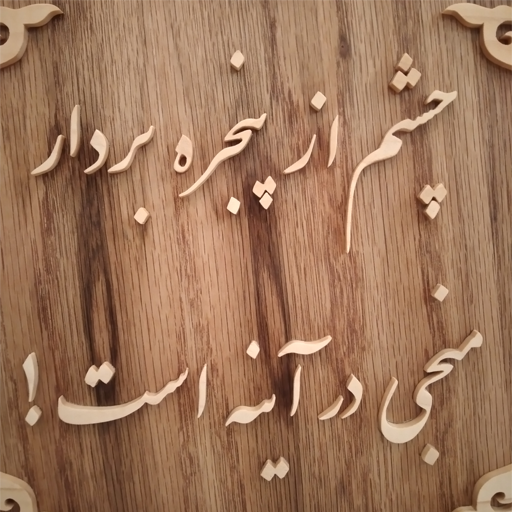 چشم از پنجره بردار
منجی در آینه است!